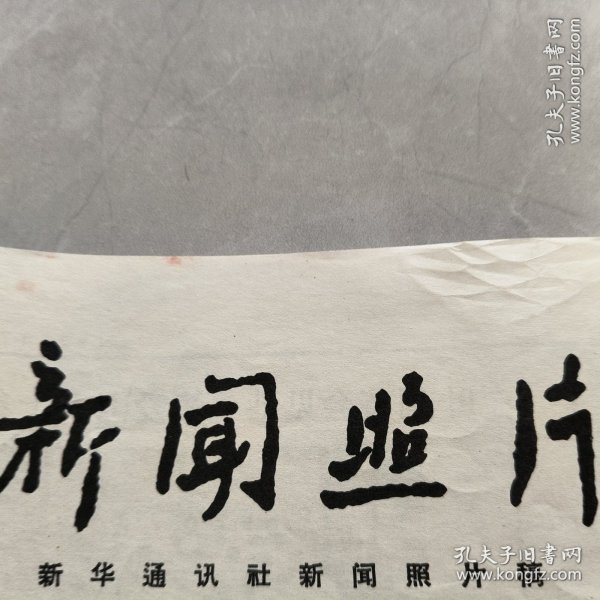 孔夫子旧书网
www.kongfz.com
新闻照片
新华通讯社新闻照片稿
孔夫子旧书网
www.kongfz.com